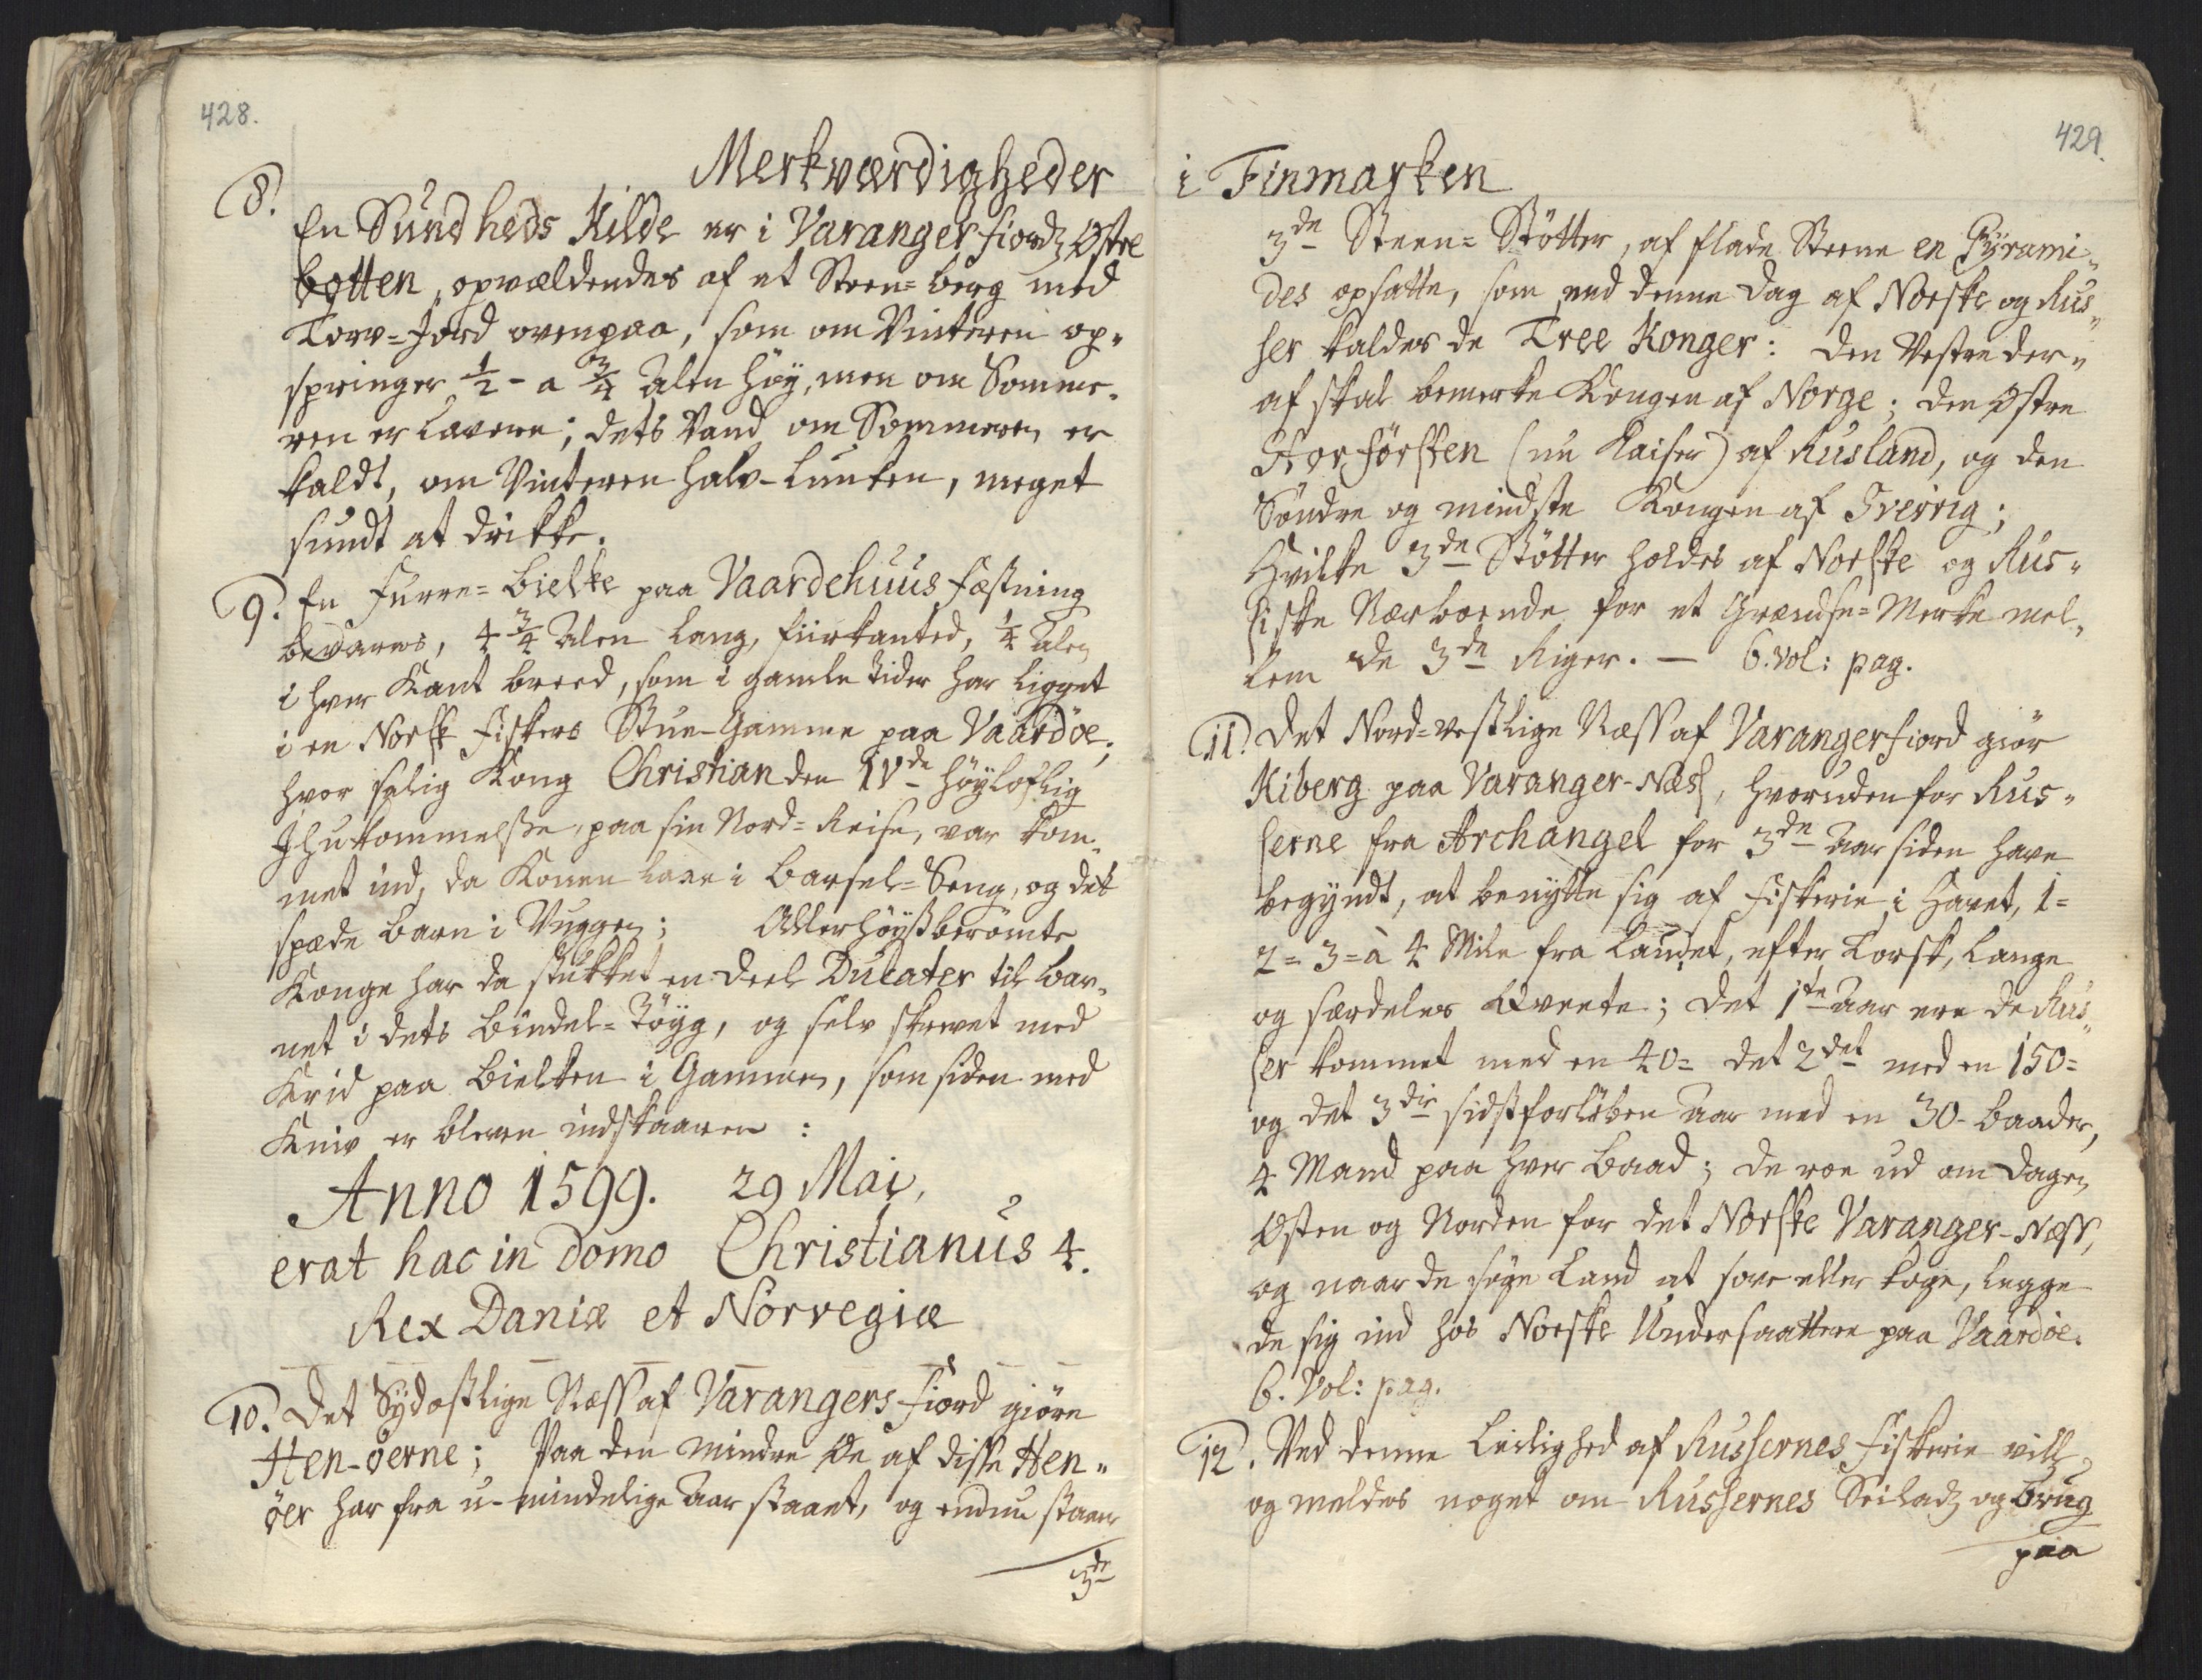 428.
Merkværdigheder
8. En Sundheds Kilde er i Varanger fiordz Østre
botten, opvældendes af et Steen=berg med
Torv=Jord ovenpaa, som om Vinteren op„
springer 1/2 - a 3/4 Alen høy, men om Somme„
ren er lavere; dets Vand om Sommeren er
kaldt, om Vinteren halv-lunken, meget
sundt at drikke.
9. En Furre=bielke paa Vaardehuus fæstning
bevares, 4 3/4 Alen lang, fiirkanted, 1/4 Alen
i hver Kant breed, som i gamle tider har ligget
i en Norsk fiskers Stue-Gamme paa Vaardöe;
hvor salig Kong Christian den IVde höyloflig
Jhukommelsse, paa sin Nord=Reise, var kom„
met ind, da Konen laae i Barsel=Seng, og det
spæde barn i Vuggen; Allerhöystberömte
Konge har da stukket en deel Ducater til bar„
net i dets bindel=Töyg, og selv skrevet med
Krid paa bielken i Gammen, som siden med
Kniv er bleven indskaaren :
Anno 1599. 29 Mai,
erat hac in domo Christianus 4.
Rex Daniæ et Norvegiæ
10. Det Sydostlige Næss af Varangers fiord giöre
Hen-öerne; Paa den mindre Öe af disse Hen„
öer har fra u-mindelige Aar staaet, og endnu staaer
3de
429.
i Finmarken
3de Steen=Stötter, af flade Steene en Pyrami„
des opsatte, som end denne dag af Norske og Rus„
ser kaldes de Tree Konger: den Vestre der„
af skal bemerke Kongen af Norge; den Østre
Storförsten (nu Kaiser) af Rusland, og den
Söndre og mindste Kongen af Sverrig;
Hvilke 3de Stötter holdes af Norske og Rus„
siske Nærboende for et Grændse=Merke mel„
lem de 3de Riger. — 6. vol: pag.
11. Det Nord=vestlige Næss af Varangerfiord giör
Kiberg paa Varanger-Næs, hvoruden for Rus„
serne fra Archangel for 3de Aar siden have
begyndt, at benytte sig af fiskerie i Havet, 1=
2= 3=à 4 Mile fra Landet, efter Torsk, Lange
og særdeles Qveete; det 1te Aar ere de Rus„
ser kommet med en 40= det 2det med en 150=
og det 3die sidstforlöben Aar med en 30 baader,
4 Mand paa hver baad; de roe ud om dagen
Østen og Norden for det Norske Varanger-Næss,
og naar de søge Land at sove eller koge, legge
de sig ind hos Norske Undersaattere paa Vaardöe.
6. Vol: pag.
12. Ved denne Leilighed af Russernes fiskerie vill
og meldes noget om Russernes Seiladz og brug
paa